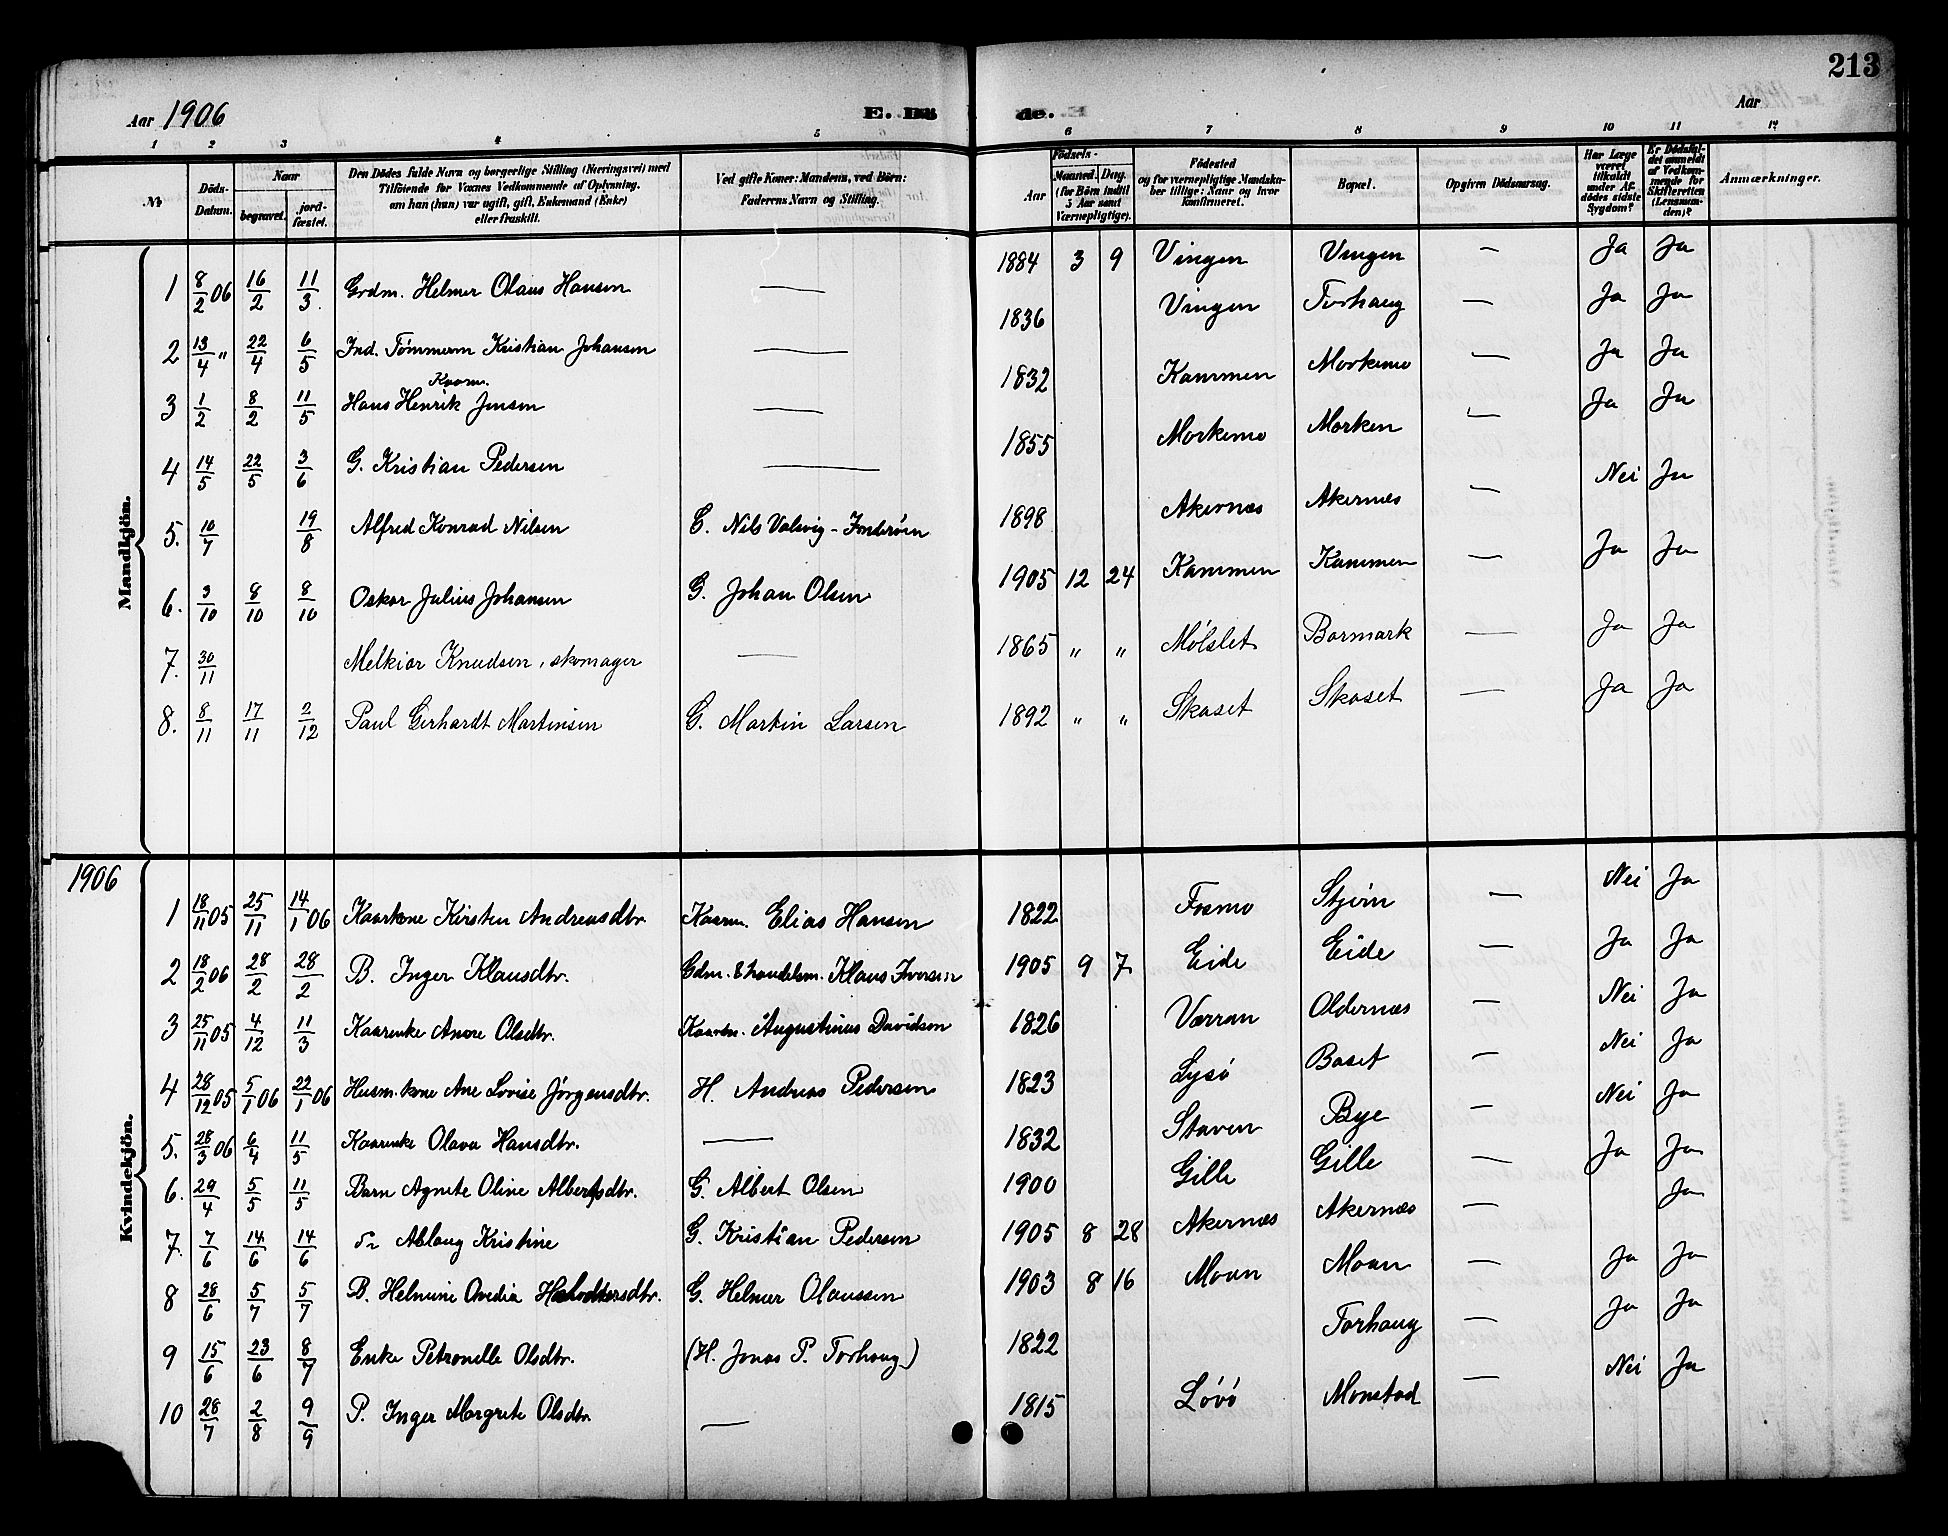 213
Aar 1906 E. Dö de. Aar
1 2 3 4 5 6 7 8 9 10 11 12
№ Döds-Datum. Naar begravet. jord-fæstet. Den Dödes fulde Navn og borgerlige Stilling (Næringsvei) med Tilföiende for Voxnes Vedkommende af Oplysning, om han (hun) var ugift, gift, Enkemand (Enke) eller fraskilt. Ved gifte Koner: Mandens, ved Børn: Faderens Navn og Stilling. Födsels- Aar Maaned. Dag. (for Börn indtil 5 Aar samt Værnepligtige). Födested og for værnepligtige Mandskaber tillige: Naar og hvor konfirmeret. Bopæl. Opgiven Dödsaarsag. Har Læge været tilkaldt under Afdödes sidste Sygdom? Er Dödsfaldet anmeldt af Vedkommende for Skifteretten (Lensmanden)? Anmærkninger.
Mandkjön.
1 8/2 06 16/2 11/3. Grdm. Helmer Olaus Hansen — 1884 3 9 Vingen Vingen — Ja Ja
2 13/4 " 22/4 6/5 Ind. Tømmerm Kristian Johansen — 1836 Vingen Torhaug — Ja Ja
Kaarm.
3 1/2 8/2 11/5 Hans Henrik Jensen — 1832 Kammen Morkemo — Ja Ja
4 14/5 22/5 3/6 G. Kristian Pedersen — 1855 Morkemo Morken — Ja Ja
5. 10/7 19/8 Alfred Konrad Nilsen E. Nils Valsvig - Inderøen 1898 Akernæs Akernæs — Nei Ja
6. 3/10 8/10 8/10 Oskar Julius Johansen G. Johan Olsen 1905 12 24 Kammen Kammen — Ja Ja
7. 30/11 Melkior Knudsen, skomager — 1865 " " Mølslet Barmark — Ja Ja
8. 8/11 17/11 2/12 Paul Gerhardt Martinsen G. Martin Larsen 1892 " " Skaset Skaset — Ja Ja
1906
Kvindekjön.
1 18/11 05 25/11 14/1 06 Kaarkone Kirsten Andreasdtr. Kaarm. Elias Hansen 1822 Fosmo Stjørn — Nei Ja
2 18/2 06 28/2 28/2 B. Inger Klausdtr. Gdm. & handelsm. Klaus Iversen 1905 9 7 Eide Eide — Ja Ja
3 25/11 05 4/12 11/3 Kaarenke Anore Olsdtr. Kaarm. Augustinus Davidson 1826 Værran Oldernæs — Nei Ja
4 28/12 05 5/1 06 22/1 06 Husm. kone Ane Lovise Jørgensdtr. H. Andreas Pedersen 1823 Lysø Baset — Nei Ja
5. 28/3 06 6/4 11/5 Kaarenke Olava Hansdtr. — 1832 Staven Bye — Nei Ja
6. 29/4 5/5 11/5 Barn Agnete Oline Albertsdtr. G. Albert Olsen 1900 Gille Gille — Ja Ja
7. 7/6 14/6 14/6 do Ablaug Kristine G. Kristian Pedersen 1905 8 28 Akernæs Akernæs — Ja
8 28/6 5/7 5/7 B. Helmine Ovedia G. Helmer Olaussen 1903 8 16 Moan Moan — Ja Ja
9 15/6 23/6 8/7 Enke Petronelle Olsdtr. (H. Jonas P. Torhaug) 1822 Torhaug — Ja Ja
10 28/7 2/8 9/9 P. Inger Margrete Olsdtr. — 1815 Løvø Monstad — Nei Ja